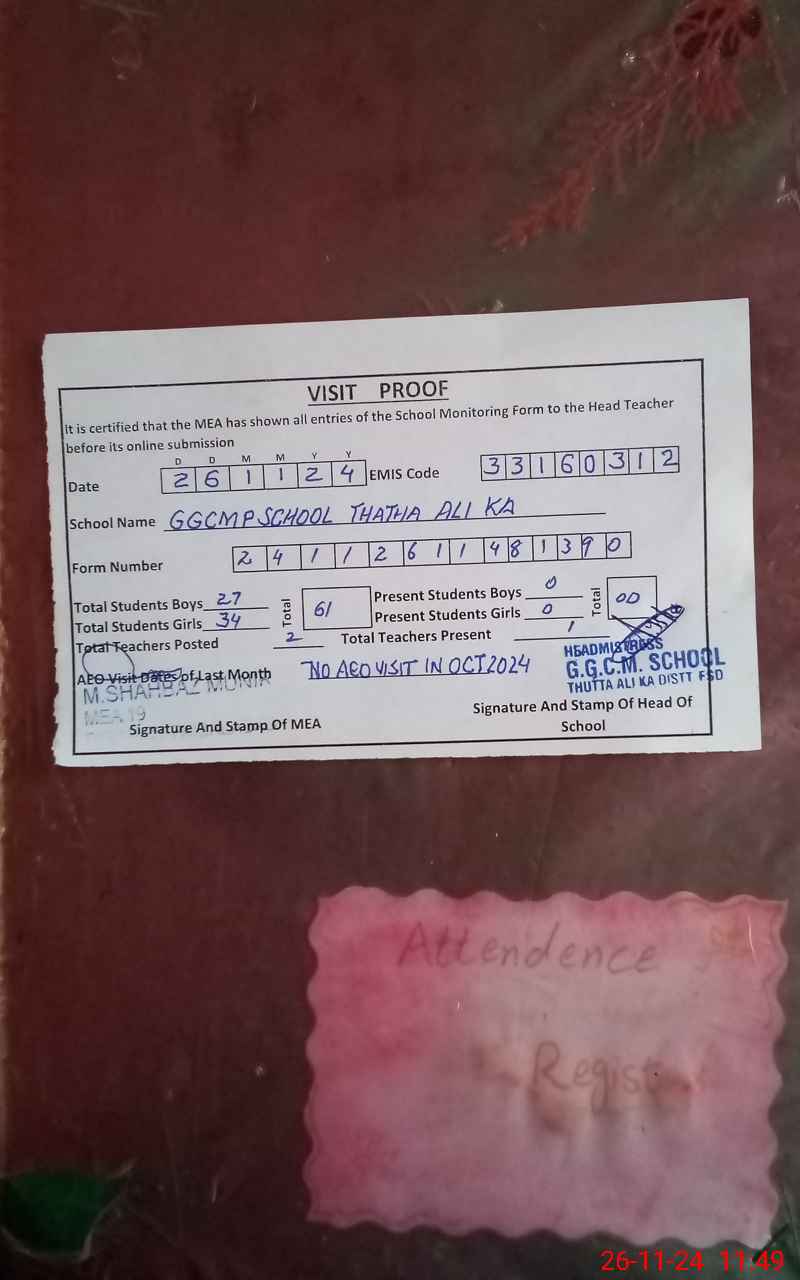 VISIT PROOF
It is certified that the MEA has shown all entries of the School Monitoring Form to the Head Teacher
before its online submission
D D M M Y Y
Date 2 6 1 1 2 4 EMIS Code 3 3 1 6 0 3 1 2
School Name GGCMPSCHOOL THATHA ALI KA
Form Number 2 4 1 1 2 6 1 1 4 8 1 3 9 0
Total Students Boys 27 Total 61 Present Students Boys 0 Total 00
Total Students Girls 34 Present Students Girls 0
Total Teachers Posted 2 Total Teachers Present 1
AEO Visit Dates of Last Month NO AEO VISIT IN OCT 2024
HEADMISTRESS
G.G.C.M. SCHOOL
THUTTA ALI KA DISTT FSD
M.SHAHBAZ MUNIR
MEA 19
Signature And Stamp Of MEA
Signature And Stamp Of Head Of
School
Attendence
Regist
26-11-24 11:49